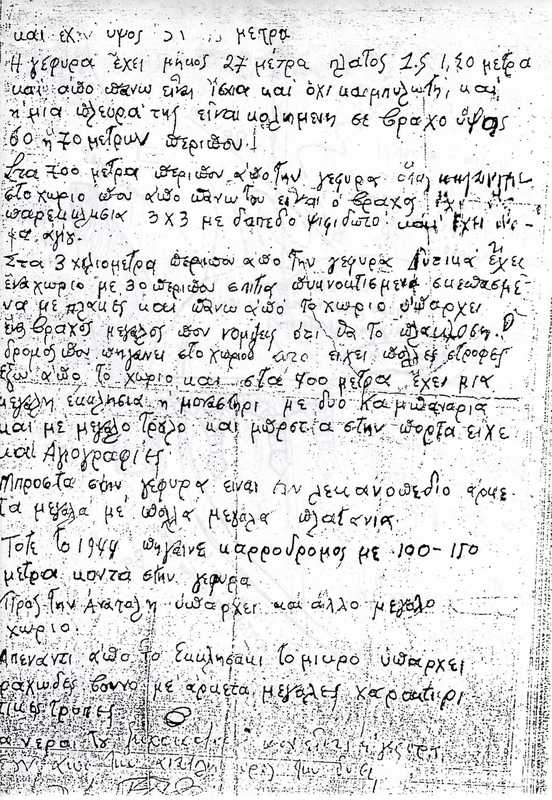 και εχη υψος μετρα
Η γεφυρα έχει μηκος 27 μέτρα πλατος 1.5 1,80 μετρα
και απο πανω ειναι ίσια και όχι καμπυλωτη, και
η μια πλευρα της είναι κολημενη σε βραχο ύψος
60 ή 70 μετρων περιπου.
Στα 700 μετρα περιπου απο την γεφυρα οταν
στο χωριο που απο πανω του ειναι ο βραχος έχι
παρεκκλησια 3x3 με δαπεδο ψιφιδωτο και έχει
Στα 3 χιλιομετρα περιπου απο την γεφυρα Δυτικα έχει
ένα χωριο με 30 περιπου σπιτια πυκνοκτισμενα σκεπασμέ-
να με πλακες και πανω απο το χωριο υπαρχει
ένας βραχος μεγαλος που νομιζεις οτι θα το πλακωση. Ο
δρομος που πηγαινει στο χωριο αυτο ειχει πολλες στροφες
έξω απο το χωριο και στα 400 μετρα έχει μια
μεγαλη εκκλησια η μοναστηρι με δυο καμπαναρια
και με μεγαλο τρουλο και μπροστα στην πορτα είχε
και Αγιογραφίες
Μπροστα στην γεφυρα ειναι ένα λεκανοπεδιο αρκε
τα μεγαλο με πολλα μεγαλα πλατανια.
Τοτε το 1944 πηγαινε καρροδρομος με 100-150
μετρα κοντα στην γεφυρα
Προς την Ανατολη υπαρχει και άλλο μεγαλο
χωριο.
Απεναντι απο το Εκκλησακι το μικρο υπαρχει
βραχωδες βουνο με αρκετα μεγαλες χαρακτηρι
τικες τρυπες